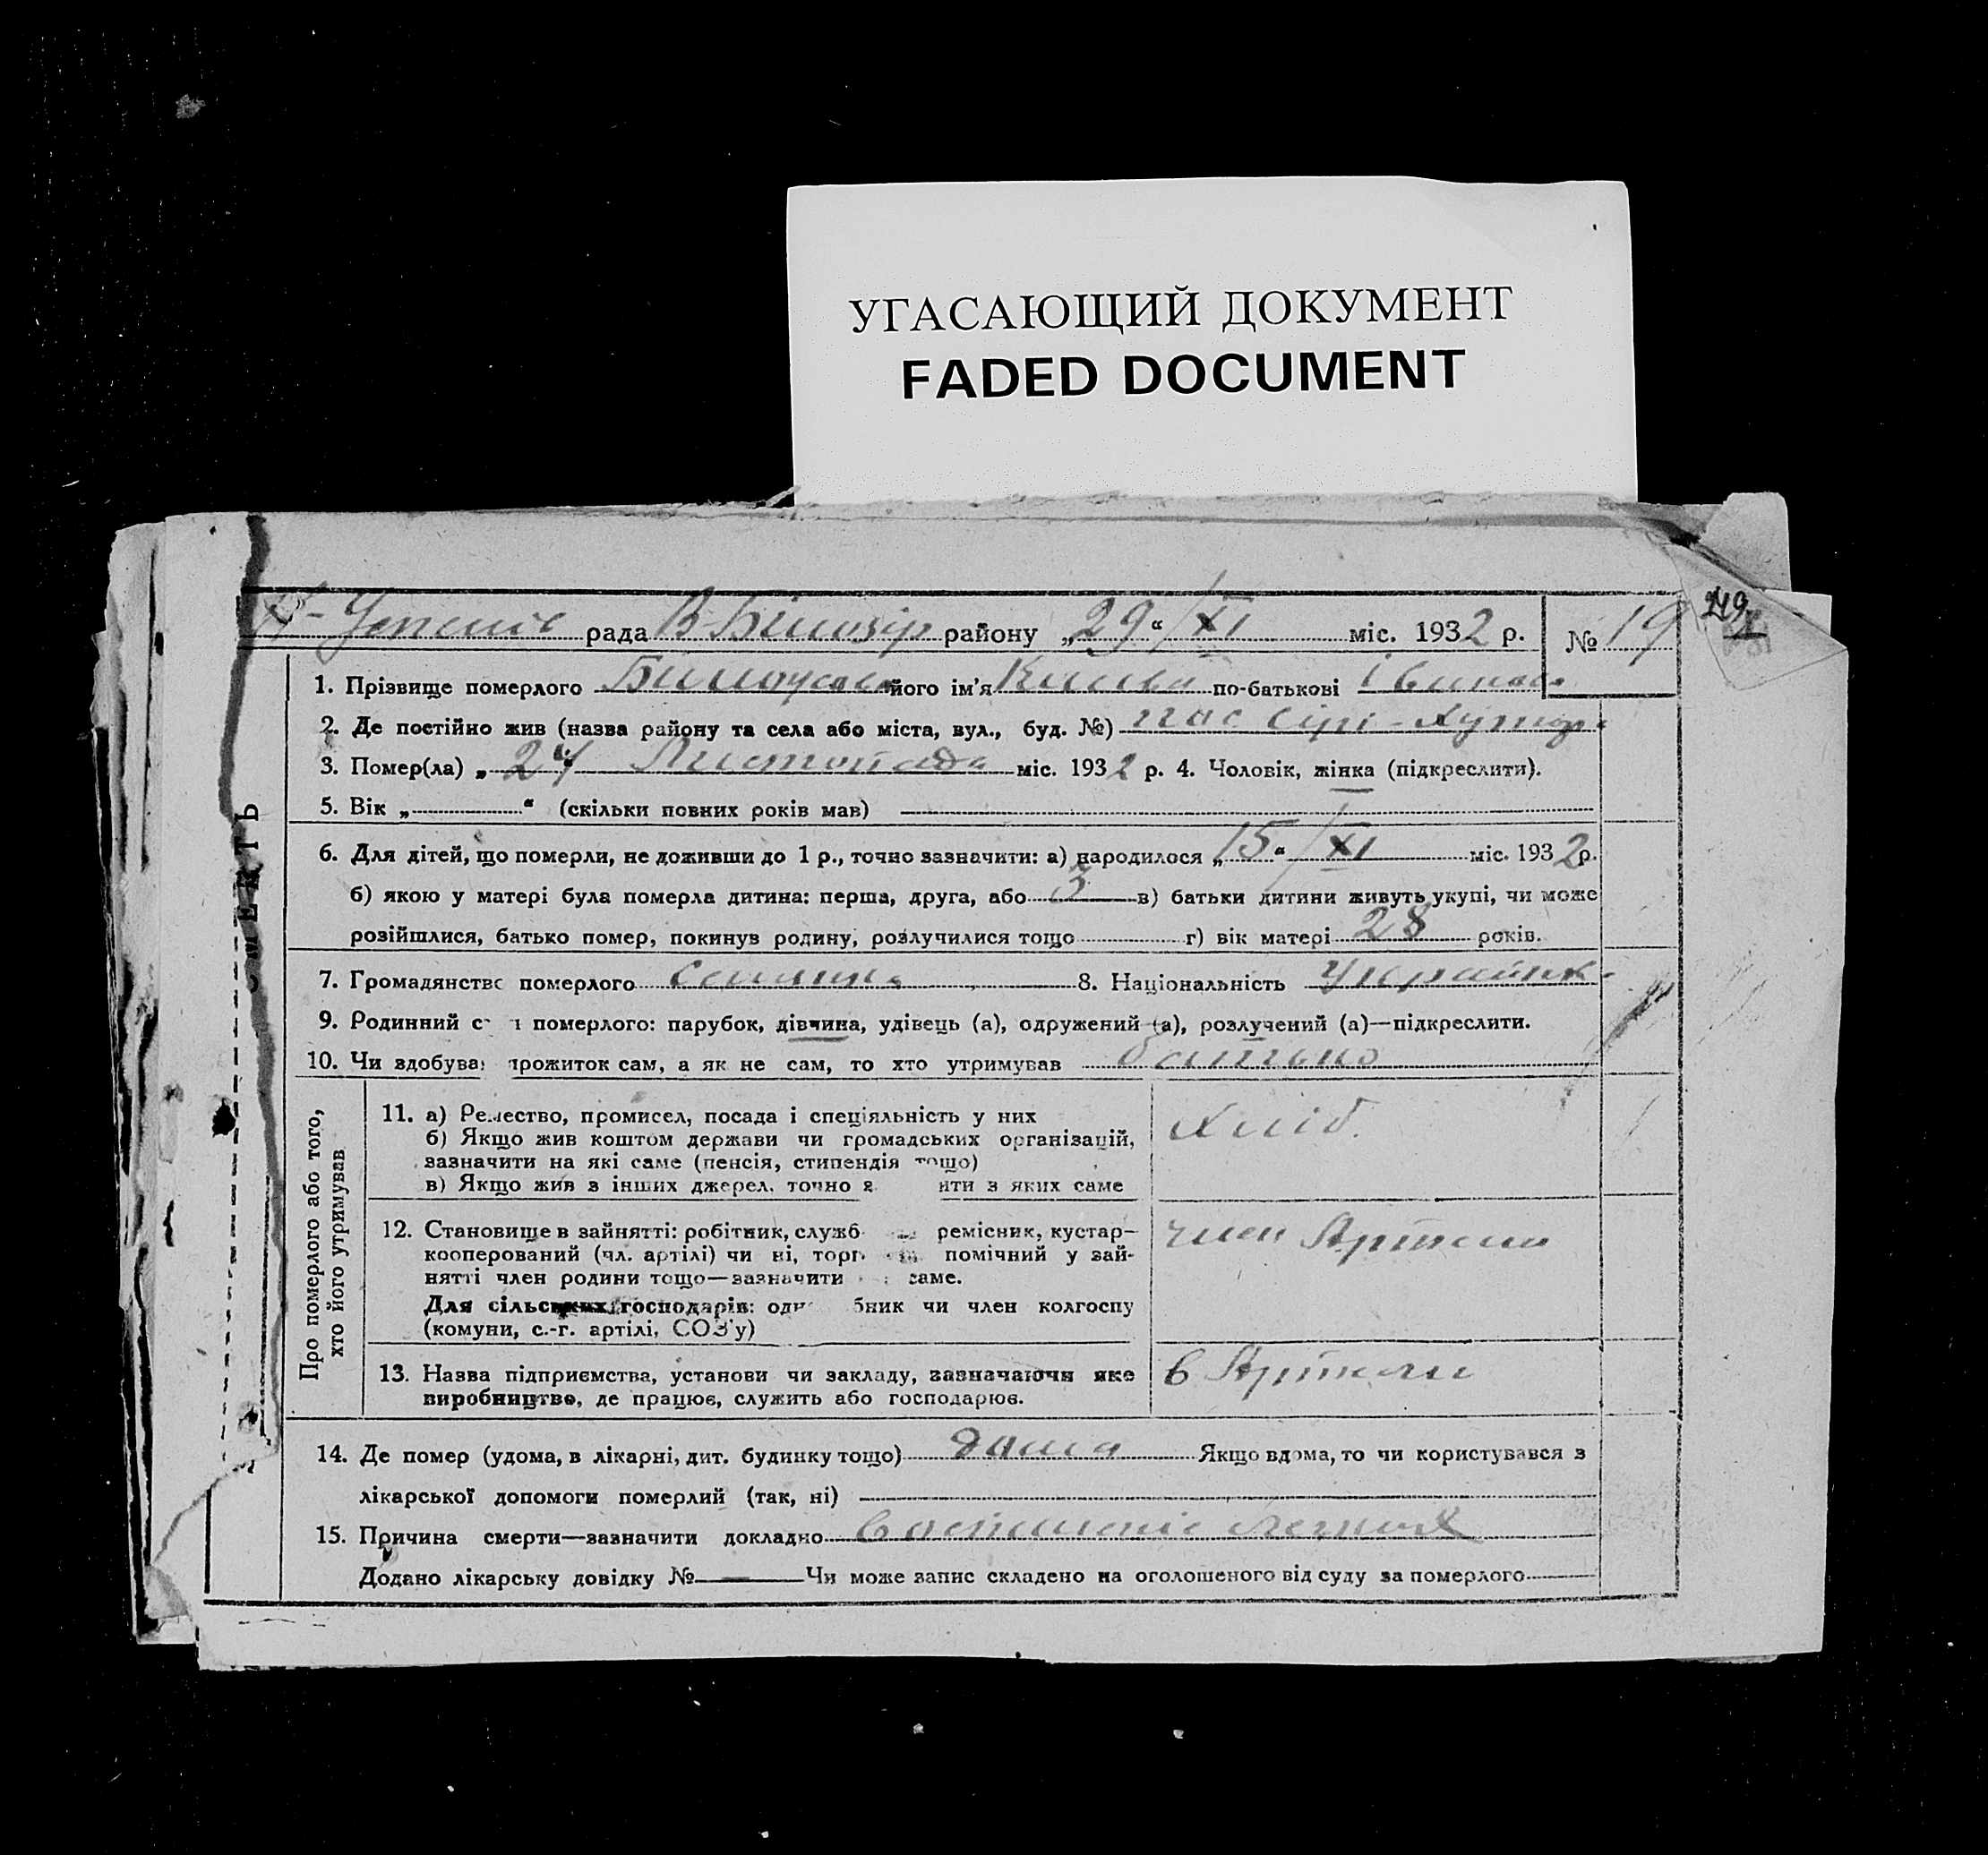 УГАСАЮЩИЙ ДОКУМЕНТ
FADED DOCUMENT
249
рада В-Білозір району „29“ /XI міс. 1932 р. № 19
СМЕРТЬ
1. Прізвище померлого його ім'я по-батькові
2. Де постійно жив (назва району та села або міста, вул., буд. №) пос Сірі-Хутор
3. Помер(ла) „ Листопада міс. 1932 р. 4. Чоловік, жінка (підкреслити).
5. Вік „ “ (скільки повних років мав)
6. Для дітей, що померли, не доживши до 1 р., точно зазначити: а) народилося „15“ /XI міс. 1932 р.
б) якою у матері була померла дитина: перша, друга, або 3 в) батьки дитини живуть укупі, чи може
розійшлися, батько помер, покинув родину, розлучилися тощо г) вік матері 28 років.
7. Громадянство померлого селянка 8. Національність Українк
9. Родинний с н померлого: парубок, дівчина, удівець (а), одружений (а), розлучений (а)—підкреслити.
10. Чи здобува прожиток сам, а як не сам, то хто утримував батько
Про померлого або того,
хто його утримував
11. а) Ремество, промисел, посада і спеціяльність у них
б) Якщо жив коштом держави чи громадських організацій,
зазначити на які саме (пенсія, стипендія тощо)
в) Якщо жив з інших джерел, точно з ити з яких саме
Хліб.
12. Становище в зайнятті: робітник, служб ремісник, кустар—
кооперований (чл. артілі) чи ні, торг помічний у зай-
нятті член родини тощо—зазначити саме.
Для сільських господарів: одн бник чи член колгоспу
(комуни, с.-г. артілі, СОЗ'у)
член Артели
13. Назва підприємства, установи чи закладу, зазначаючи яке
виробництво, де працює, служить або господарює.
в Артели
14. Де помер (удома, в лікарні, дит. будинку тощо) дома Якщо вдома, то чи користувався з
лікарської допомоги померлий (так, ні)
15. Причина смерти—зазначити докладно воспаленіе легких
Додано лікарську довідку № — Чи може запис складено на оголошеного від суду за померлого